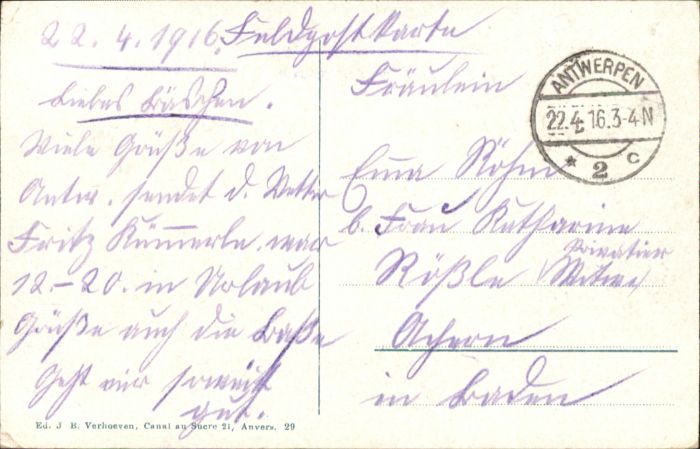 22.4.1916. Feldpostkarte
Liebes Bäschen.
Viele Grüße von
Antw. sendet d. Vetter
Fritz Kümmerle. war
12.-20. in Urlaub
Grüße auch die Baße
Geht mir soweit
gut.
Fräulein
Emma Röhm
b. Frau Katharine
Rößle (Privatier
Witwe)
Achern
in Baden
ANTWERPEN
22.4.16.3-4N
* 2 c
Ed. J. B. Verhoeven, Canal au Sucre 21, Anvers. 29